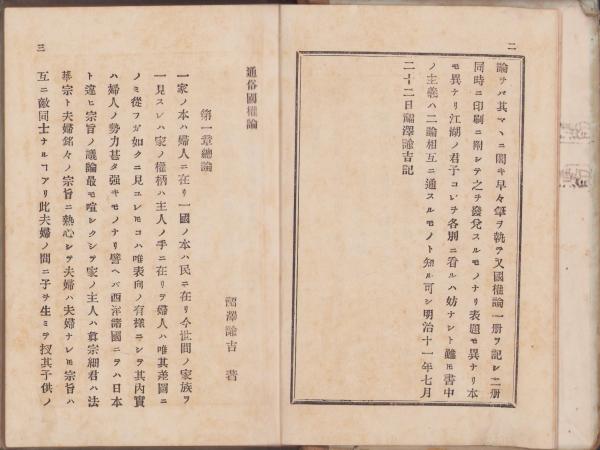 二
論ヲバ其マヽニ閣キ早々筆ヲ執テ又國權論一册ヲ記シ二册
同時ニ印刷ニ附シテ之ヲ發兌スルモノナリ表題モ異ナリ本
モ異ナリ江湖ノ君子コレヲ各別ニ看ルハ妨ナシト雖モ書中
ノ主義ハ二論相互ニ通スルモノト知ル可シ明治十一年七月
二十二日福澤諭吉記
通俗國權論
福澤諭吉 著
第一章總論
一家ノ本ハ婦人ニ在リ一國ノ本ハ民ニ在リ今世間ノ家族ヲ
一見スレハ家ノ權柄ハ主人ノ手ニ在リテ婦人ハ唯其差圖ニ
ノミ從フガ如クニ見ユレモコハ唯表向ノ有樣ニシテ其内實
ハ婦人ノ勢力甚タ强キモノナリ譬ヘバ西洋諸國ニテハ日本
ト違ヒ宗旨ノ議論最モ喧シクシテ家ノ主人ハ眞宗細君ハ法
華宗ト夫婦銘々ノ宗旨ニ熱心シテ夫婦ハ夫婦ナレモ宗旨ハ
互ニ敵同士ナルヿアリ此夫婦ノ間ニ子ヲ生ミテ扨其子供ノ
三